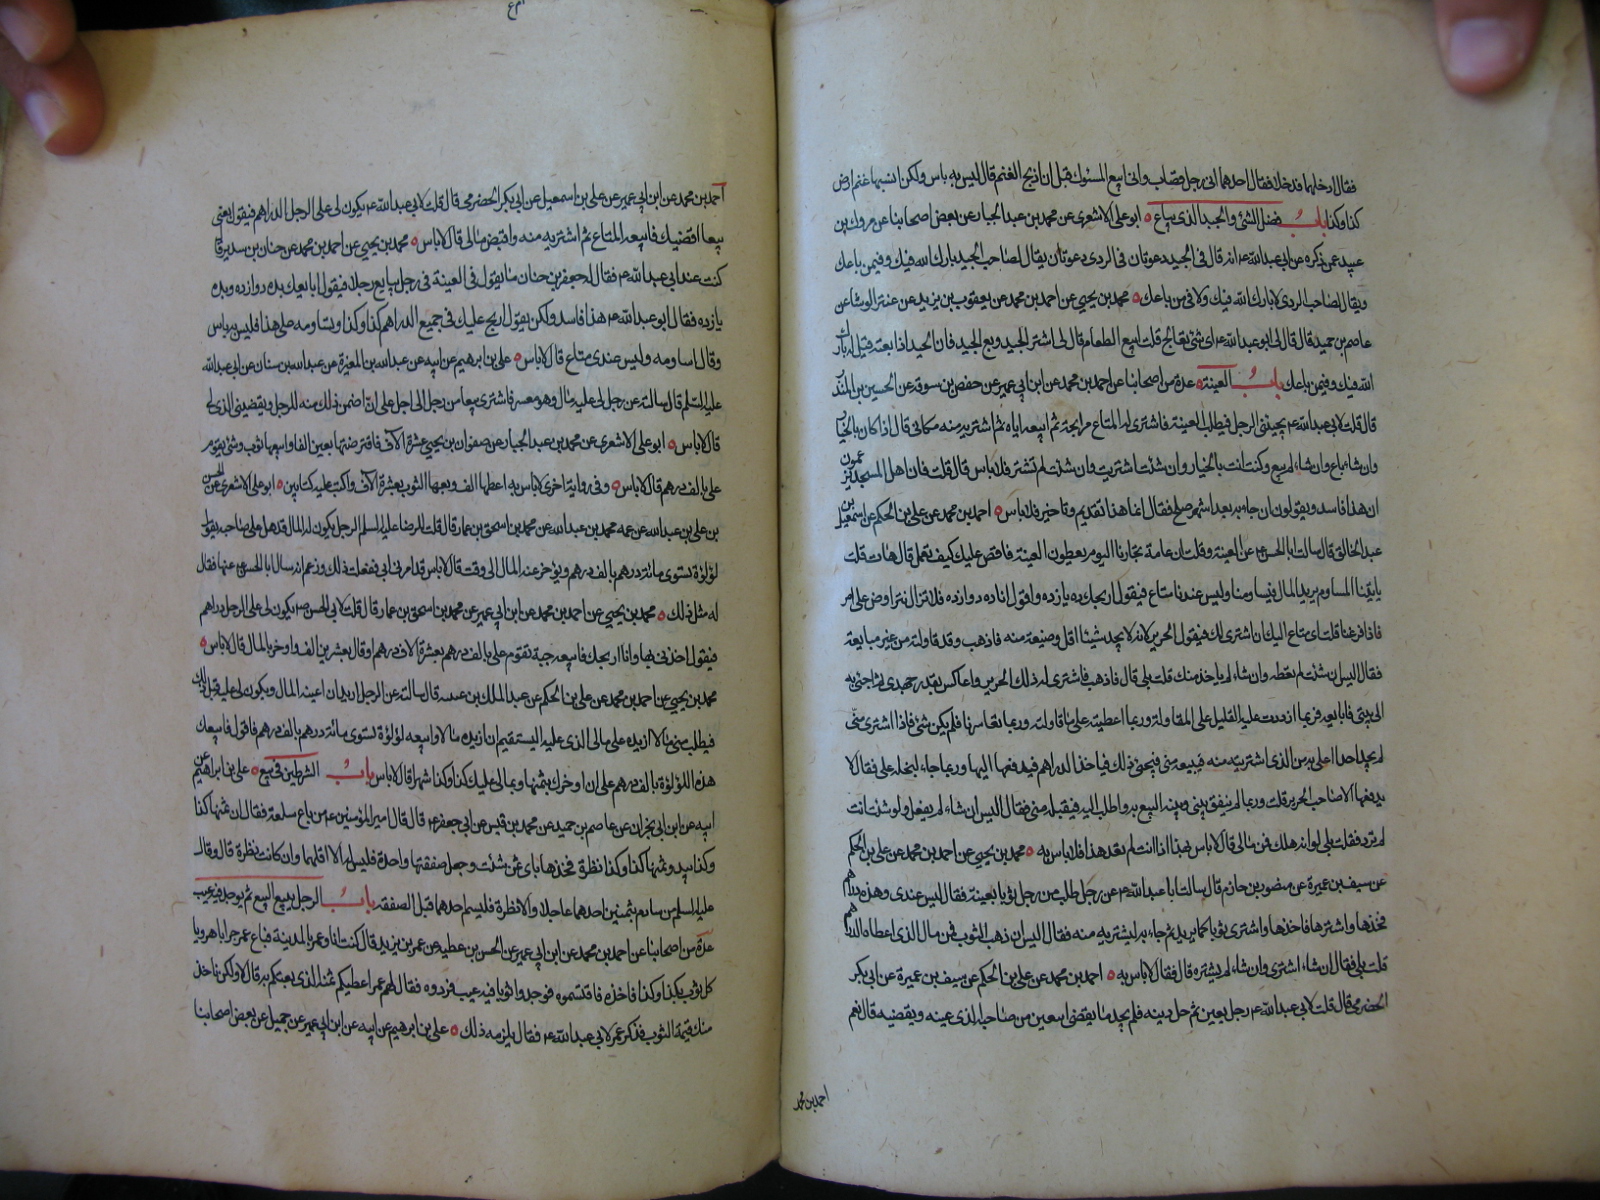 فقال ادخلهما فدخلا فقال احدهما انى رجل قصاب وانى ابيع المسوك قبل ان اذبح الغنم قال ليس به باس ولكن انسبها غنم ارض
كذا وكذا باب فضل الشئ والجيد الذى يباع ابو على الاشعرى عن محمد بن عبد الجبار عن بعض اصحابنا عن مروك بن
عبيد عمن ذكره عن ابى عبد الله ع انه قال فى الجيد دعوتان فى الردى دعوتان يقال لصاحب الجيد بارك الله فيك وفيمن باعك
ويقال لصاحب الردى لا بارك الله فيك ولا فى من باعك محمد بن يحيى عن احمد بن محمد عن يعقوب بن يزيد عن الوشا عن
عاصم بن حميد قال قال لى ابو عبد الله ع اى شئ تعالج قلت ابيع الطعام قال لى اشتر الجيد وبع الجيد فان الجيد اذا بعته قيل له بارك
الله فيك وفيمن باعك باب العينة عدة من اصحابنا عن احمد بن محمد عن ابن ابى عمير عن حفص بن سوقة عن الحسين بن المنذر
قال قلت لابى عبد الله ع يجيئنى الرجل فيطلب العينة فاشترى له المتاع مرابحة ثم ابيعه اياه ثم اشتريه منه مكانى قال اذا كان بالخيار
ان شاء باع وان شاء لم يبع وكنت انت بالخيار وان شئت اشتريت وان شئت لم تشتر فلا باس قال قلت فان اهل المسجد يزعمون
ان هذا فاسد ويقولون ان جاء به بعد اشهر صلح فقال انما هذا تقديم وتاخير فلا باس احمد بن محمد عن على بن الحكم عن اسمعيل بن
عبد الخالق قال سالت ابا الحسن ع عن العينة وقلت ان عامة تجارنا اليوم يعطون العينة فاقص عليك كيف نعمل قال هات قلت
ياتينا المساوم يريد المال فيساومنا وليس عندنا متاع فيقول اربحك ده يازده واقول انا ده دوازده فلا نزال نتراوض على امر
فاذا فرغنا قلت اى متاع احب اليك ان اشترى لك فيقول الحرير لانه لا يجد شيئا اقل وضيعة منه فاذهب وقد قاولته من غير مبايعة
فقال اليس ان شئت لم تعطه وان شاء لم ياخذ منك قلت بلى قال فاذهب فاشترى له ذلك الحرير واماكس بقدر جهدى ثم اجئ به
الى بيتى فابايعه فربما ازددت عليه القليل على المقاولة وربما اعطيته على ما قاولته وربما تعاسرنا فلم يكن شئ فاذا اشترى منى
لم يجد احدا اغلى به من الذى اشتريته منه فيبيعه منه فيجئ ذلك فياخذ الدراهم فيدفعها اليه وربما جاء ليحيله على فقال لا
تدفعها الا الى صاحب الحرير قلت وربما لم يتفق بينى وبينه البيع به واطلب اليه فيقبله منى فقال اليس ان شاء لم يفعل ولو شئت انت
لم ترد فقلت بلى لو انه هلك فمن مالى قال لا باس بهذا اذا انت لم تعد هذا فلا باس به محمد بن يحيى عن احمد بن محمد عن على بن الحكم
عن سيف بن عميرة عن منصور بن حازم قال سالت ابا عبد الله ع عن رجل طلب من رجل ثوبا بعينة فقال ليس عندى وهذه دراهم
فخذها واشتر بها فاخذها واشترى ثوبا كما يريد ثم جاء به ليشتريه منه فقال اليس ان ذهب الثوب فمن مال الذى اعطاه الدراهم
قلت بلى فقال ان شاء اشترى وان شاء لم يشتره قال فقال لا باس به احمد بن محمد عن على بن الحكم عن سيف بن عميرة عن ابى بكر
الحضرمى قال قلت لابى عبد الله ع رجل يعين ثم حل دينه فلم يجد ما يقضى ايتعين من صاحبه الذى عينه ويقضيه قال نعم
احمد بن محمد
احمد بن محمد عن ابن ابى عمير عن على بن اسمعيل عن ابى بكر الحضرمى قال قلت لابى عبد الله ع يكون لى على الرجل الدراهم فيقول بعنى
بيعا اقضيك فابيعه المتاع ثم اشتريه منه واقبض مالى قال لا باس محمد بن يحيى عن احمد بن محمد عن حنان بن سدير قال
كنت عند ابى عبد الله ع فقال له جعفر بن حنان ما تقول فى العينة فى رجل يبايع رجلا فيقول ابايعك بده دوازده وبده
يازده فقال ابو عبد الله ع هذا فاسد ولكن يقول اربح عليك فى جميع الدراهم كذا وكذا ويساومه على هذا فليس به باس
وقال اساومه وليس عندى متاع قال لا باس على بن ابرهيم عن ابيه عن عبد الله بن المغيرة عن عبد الله بن سنان عن ابى عبد الله
عليه السلم قال سالته عن رجل لى عليه مال وهو معسر فاشترى بيعا من رجل الى اجل على ان اضمن ذلك عنه للرجل ويقضينى الذى لى
قال لا باس ابو على الاشعرى عن محمد بن عبد الجبار عن صفوان بن يحيى عشرة الاف فاقرضتها بعين الفا وابيعها ثوب وشى تقوم
على بالف درهم قال لا باس وفى رواية اخرى لا باس به اعطها الف وبعها الثوب بعشرة الاف واكتب عليه كتابين ابو على الاشعرى عن الحسن
بن على بن عبد الله عن عمه محمد بن عبد الله عن محمد بن اسحق بن عمار قال قلت للرضا عليه السلم الرجل يكون له المال قد حل على صاحبه يبيعه
لؤلؤة تسوى مائة درهم بالف درهم ويؤخر عنه المال الى وقت قال لا باس قد امرنى ابى ففعلت ذلك وزعم انه سال ابا الحسن ع عنها فقال
له مثل ذلك محمد بن يحيى عن احمد بن محمد عن ابن ابى عمير عن محمد بن اسحق بن عمار قال قلت لابى الحسن ع يكون لى على الرجل دراهم
فيقول اخرنى بها وانا اربحك فابيعه جبة تقوم على بالف درهم بعشرة الاف درهم وقال بعشرين الف واوخره بالمال قال لا باس
محمد بن يحيى عن احمد بن محمد عن على بن الحكم عن عبد الملك بن عتبة قال سالته عن الرجل اريد ان اعينه المال ويكون لى عليه قبل ذلك
فيطلب منى مالا ازيده على مالى الذى عليه ايستقيم ان ازيده مالا وابيعه لؤلؤة تسوى مائة درهم بالف درهم فاقول فابيعك
هذه اللؤلؤة بالف درهم على ان اوخرك بثمنها وبمالى عليك كذا وكذا شهرا قال لا باس باب الشرطين فى بيع على بن ابراهيم عن
ابيه عن ابن ابى نجران عن عاصم بن حميد عن محمد بن قيس عن ابى جعفر ع قال قال امير المؤمنين ع من باع سلعة فقال ان ثمنها كذا
وكذا يدا بيد وثمنها كذا وكذا نظرة فخذها باى ثمن شئت وجعل صفقتها واحدة فليس له الا اقلهما وان كانت نظرة قال وقال
عليه السلم من ساوم بثمنين احدهما عاجلا والاخر نظرة فليسم احدهما قبل الصفقة باب الرجل يبيع البيع ثم يوجد فيه عيب
عدة من اصحابنا عن احمد بن محمد عن ابن ابى عمير عن الحسن بن عطية عن عمر بن يزيد قال كنت انا وعمر بالمدينة فباع عمر جرابا هرويا
كل ثوب بكذا وكذا فاخذوه فاقتسموه فوجدوا ثوبا فيه عيب فردوه فقال لهم عمر اعطيكم ثمنه الذى بعتكم به قال لا ولكن ناخذ
منك قيمة الثوب فذكر عمر لابى عبد الله ع فقال يلزمه ذلك على بن ابرهيم عن ابيه عن ابن ابى عمير عن جميل عن بعض اصحابنا